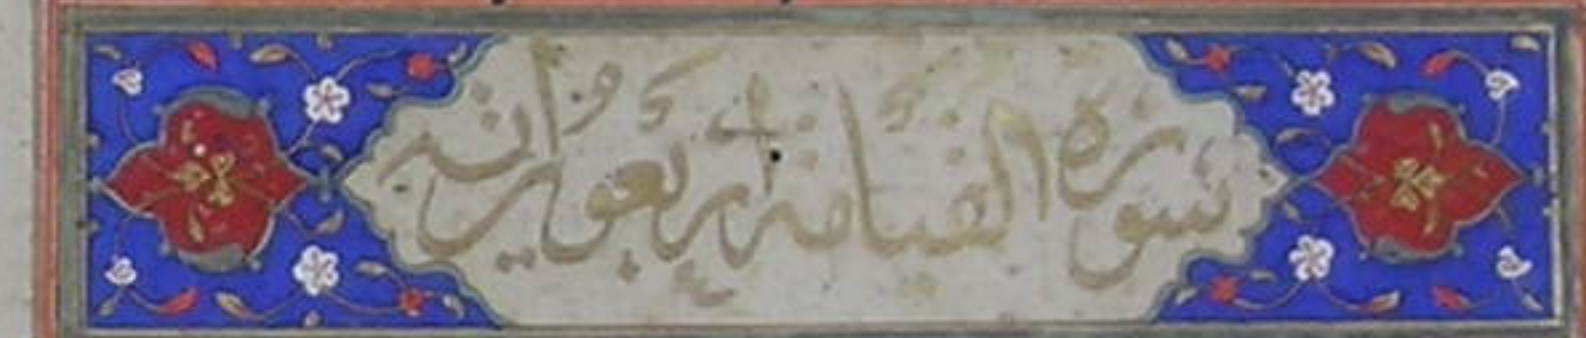 سورة القيامة اربعون اية